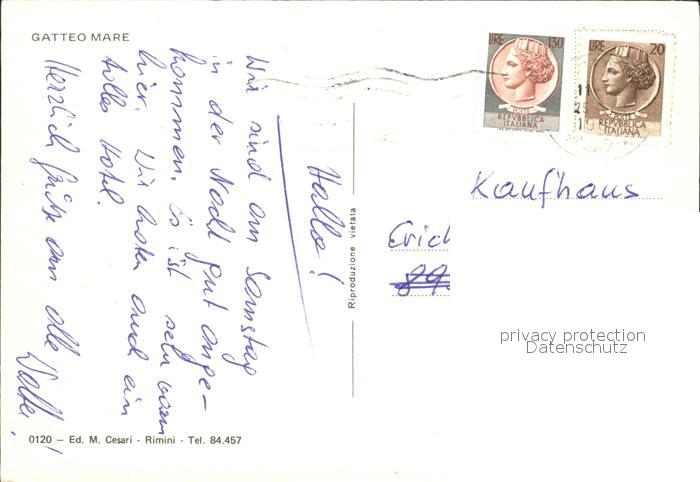 GATTEO MARE
Hallo!
Wir sind am Samstag
in der Nacht gut ange-
kommen. Es ist sehr warm
hier. Wir haben auch ein
tolles Hotel.
Herzlich Grüße an alle
LIRE 130
POSTE
REPVBBLICA
ITALIANA
LIRE 20
POSTE
REPVBBLICA
ITALIANA
Kaufhaus
Erich
89
Riproduzione vietata
privacy protection
Datenschutz
0120 – Ed. M. Cesari - Rimini - Tel. 84.457